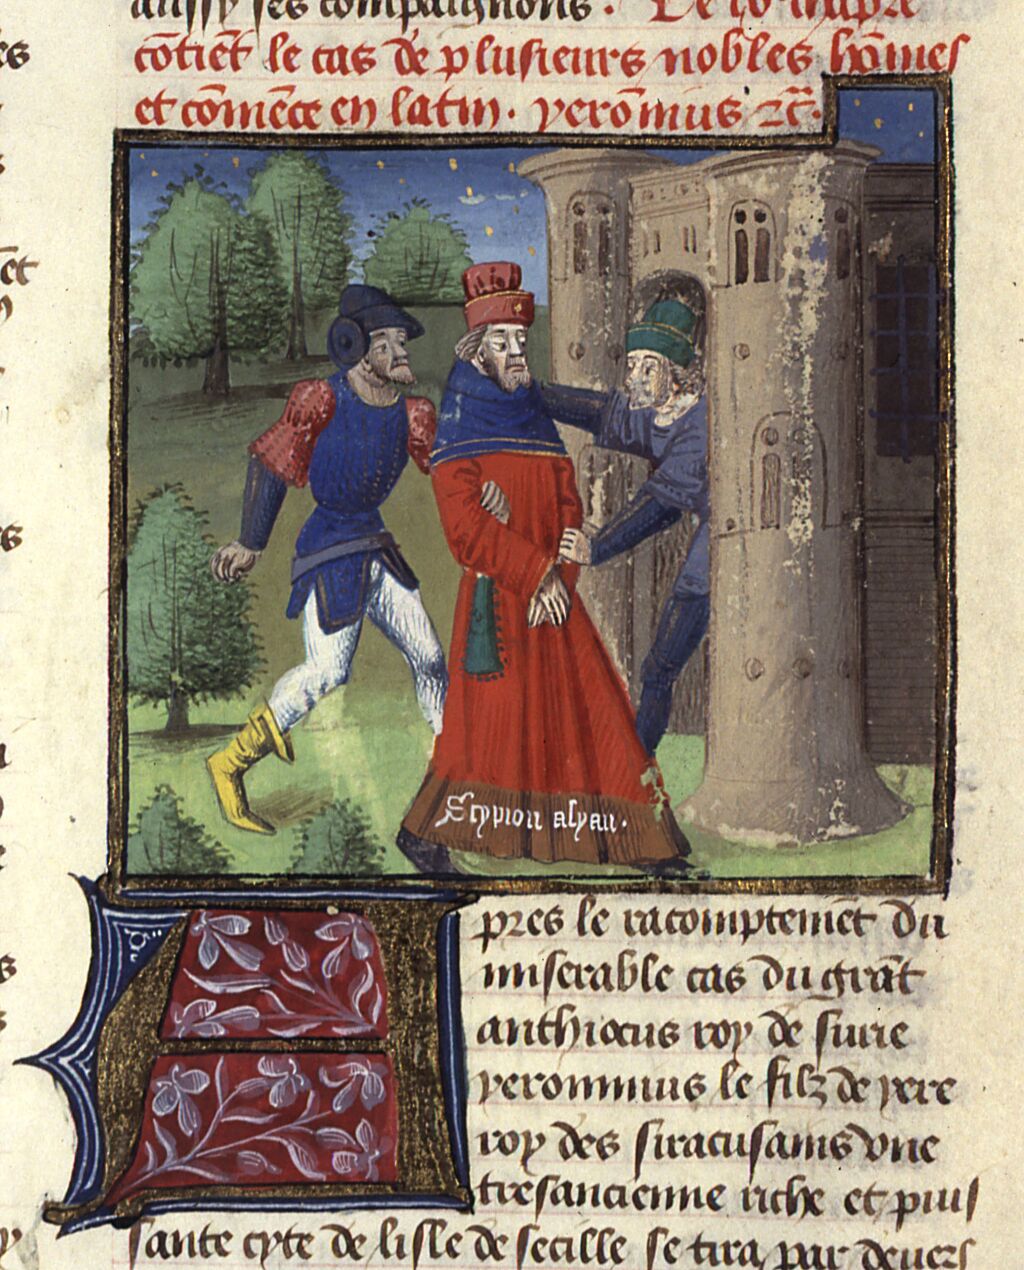 aussy ses compaignons. Le
cōtiēt le cas de plusieurs nobles hōmes
et cōmēce en latin. yerōmius ⁊c̄.
Scypion asyan.
Apres le racomptemēt du
miserable cas du grāt
anthiocus roy de surie
yeronimus le filz de yere
roy des siracusains vne
tresancienne riche et puis
sante cyte de lisle de secille se tira par deuers